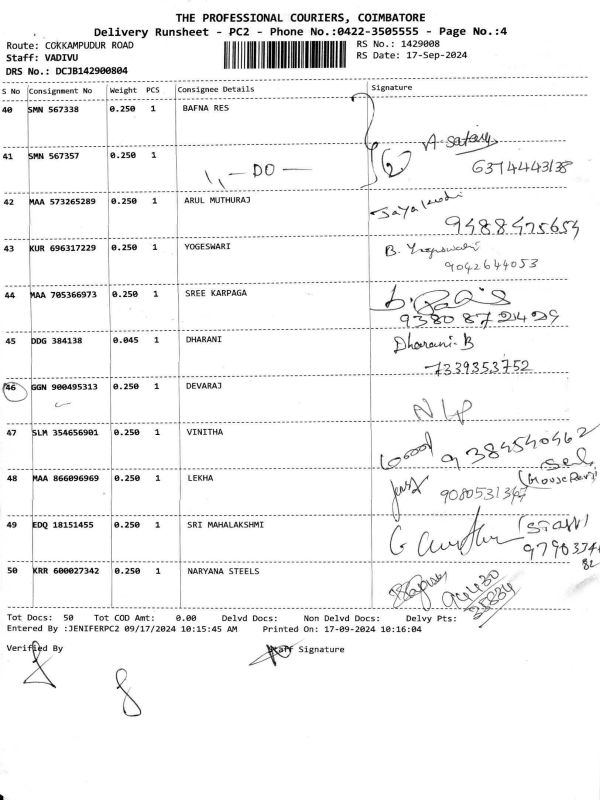 THE PROFESSIONAL COURIERS, COIMBATORE
Delivery Runsheet - PC2 - Phone No.:0422-3505555 - Page No.:4
Route: COKKAMPUDUR ROAD RS No.: 1429008
Staff: VADIVU RS Date: 17-Sep-2024
DRS No.: DCJB142900804
S No Consignment No Weight PCS Consignee Details Signature
40 SMN 567338 0.250 1 BAFNA RES
41 SMN 567357 0.250 1 ,, — DO — (2) A. Sathy
6374443138
42 MAA 573265289 0.250 1 ARUL MUTHURAJ
9488425654
43 KUR 696317229 0.250 1 YOGESWARI B. Yogeswari
9042644053
44 MAA 705366973 0.250 1 SREE KARPAGA
9380872429
45 DDG 384138 0.045 1 DHARANI Dharani.B
7339353752
46 GGN 900495313 0.250 1 DEVARAJ
47 SLM 354656901 0.250 1 VINITHA 9384540462
48 MAA 866096969 0.250 1 LEKHA
49 EDQ 18151455 0.250 1 SRI MAHALAKSHMI (Staff)
50 KRR 600027342 0.250 1 NARYANA STEELS
Tot Docs: 50 Tot COD Amt: 0.00 Delvd Docs: Non Delvd Docs: Delvy Pts:
Entered By :JENIFERPC2 09/17/2024 10:15:45 AM Printed On: 17-09-2024 10:16:04
Verified By Staff Signature